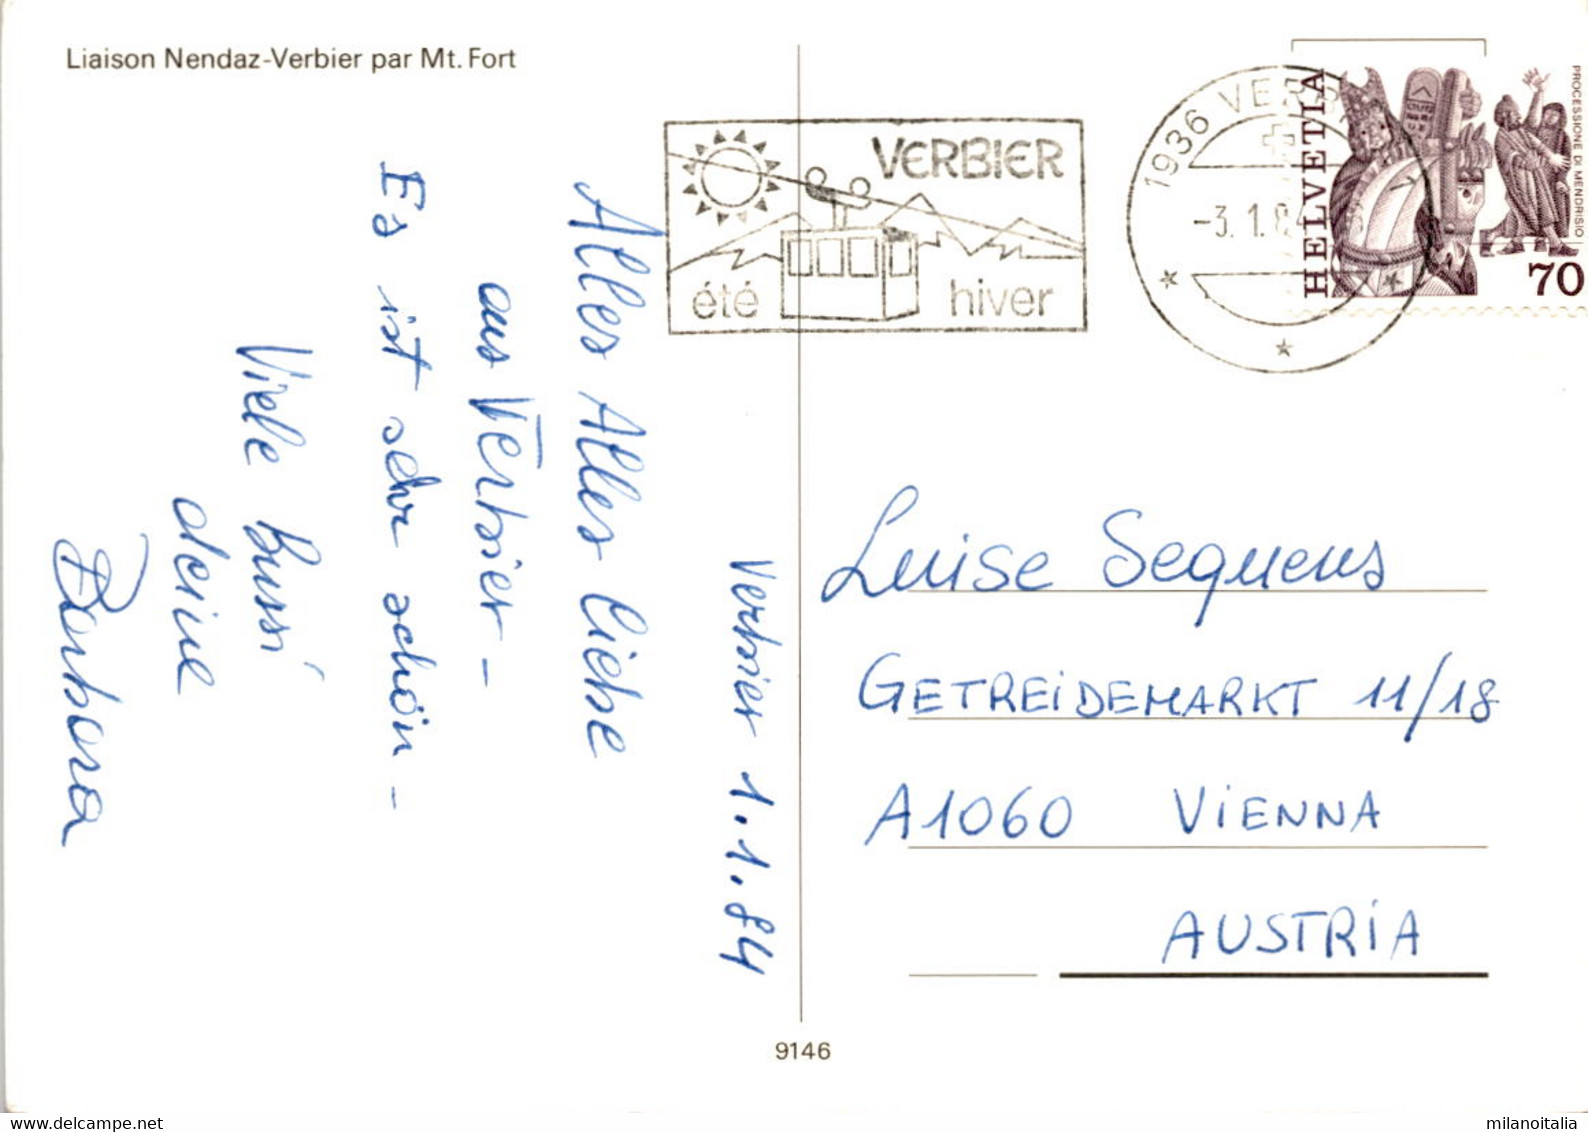 Liaison Nendaz-Verbier par Mt. Fort
VERBIER
été hiver
1936 VERB
-3. 1. 84
HELVETIA
PROCESSIONE DI MENDRISIO
70
Verbier 1.1.84
Alles Alles Liebe
aus Verbier –
Es ist sehr schön –
Viele Bussi
deine
Barbara
Luise Sequens
GETREIDEMARKT 11/18
A1060 VIENNA
AUSTRIA
9146
milanoitalia